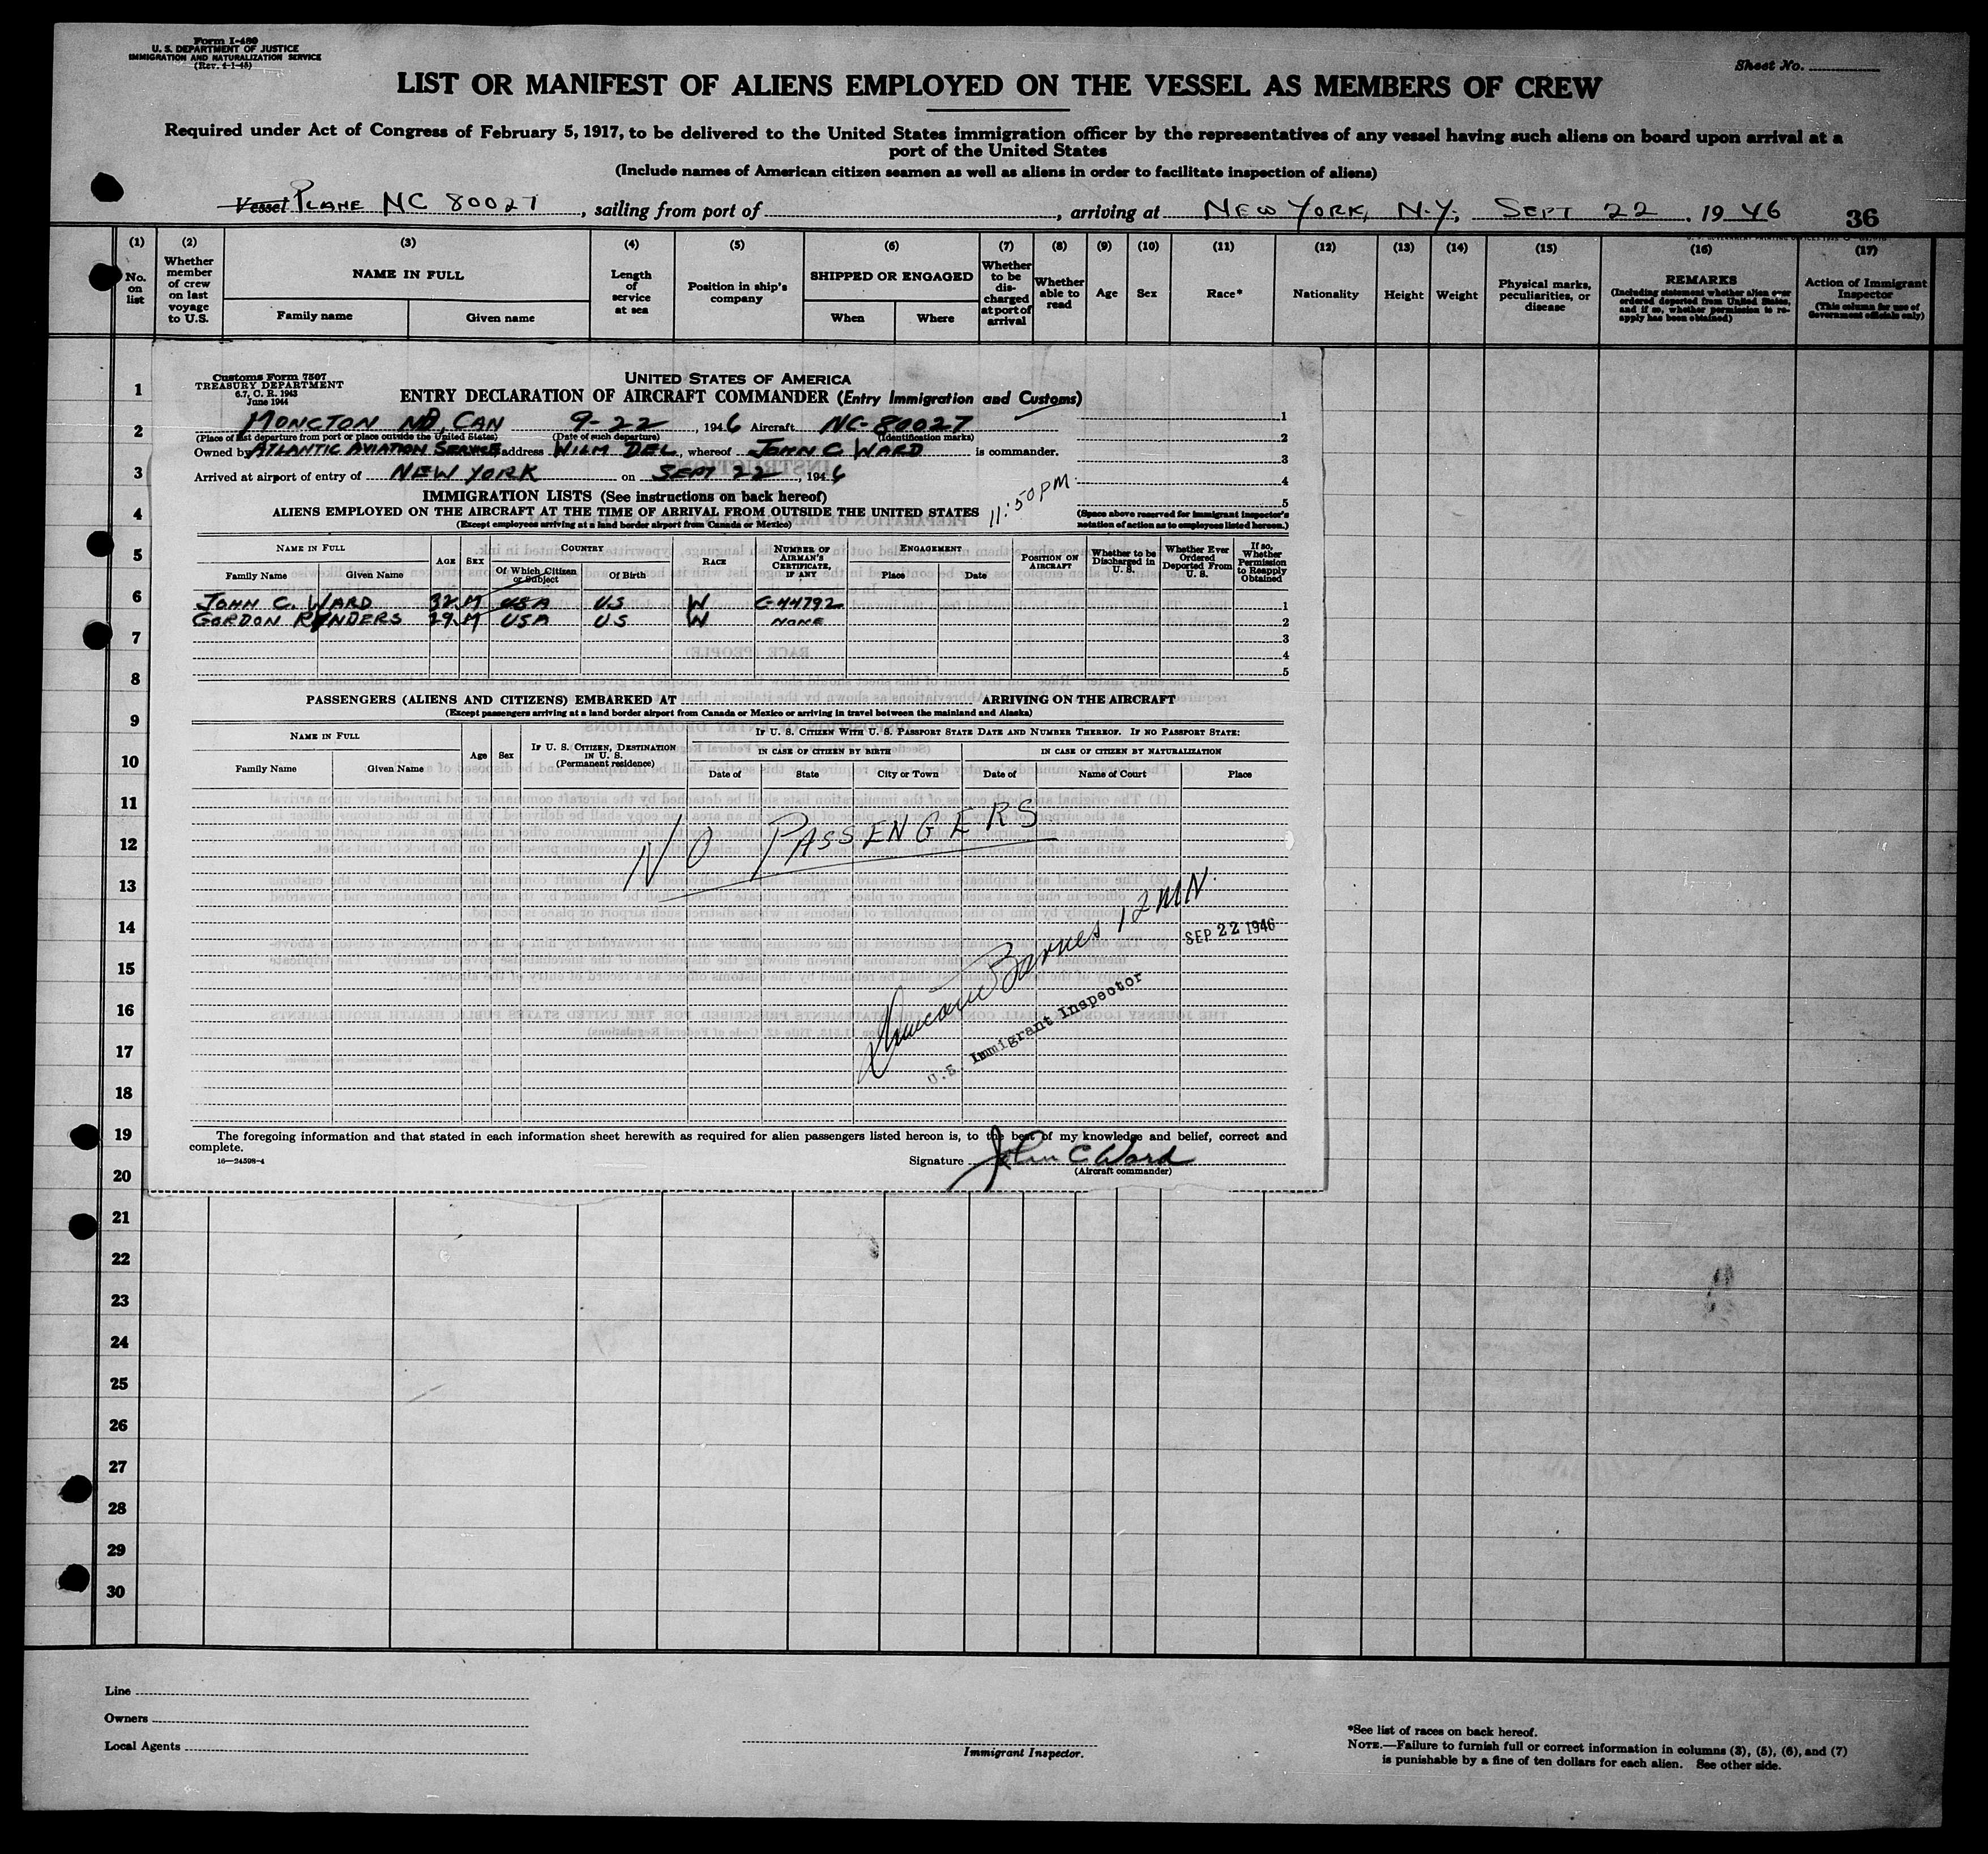 Form I-480
U. S. DEPARTMENT OF JUSTICE
IMMIGRATION AND NATURALIZATION SERVICE
(Rev. 4-1-45)
Sheet No.
LIST OR MANIFEST OF ALIENS EMPLOYED ON THE VESSEL AS MEMBERS OF CREW
Required under Act of Congress of February 5, 1917, to be delivered to the United States immigration officer by the representatives of any vessel having such aliens on board upon arrival at a
port of the United States
(Include names of American citizen seamen as well as aliens in order to facilitate inspection of aliens)
Vessel PLANE NC 80027, sailing from port of , arriving at NEW YORK, N.Y., SEPT 22, 1946 36
(1) (2) (3) (4) (5) (6) (7) (8) (9) (10) (11) (12) (13) (14) (15) (16) (17)
No. on list
Whether member of crew on last voyage to U.S.
NAME IN FULL
Family name Given name
Length of service at sea
Position in ship's company
SHIPPED OR ENGAGED
When Where
Whether to be discharged at port of arrival
Whether able to read
Age
Sex
Race*
Nationality
Height
Weight
Physical marks, peculiarities, or disease
REMARKS
(Including statement whether alien ever ordered deported from United States, and if so, whether permission to reapply has been obtained)
Action of Immigrant Inspector
(This column for use of Government officials only)
1
2
3
4
5
6
7
8
9
10
11
12
13
14
15
16
17
18
19
20
21
22
23
24
25
26
27
28
29
30
Customs Form 7507
TREASURY DEPARTMENT
6.7, C. R. 1943
June 1944
UNITED STATES OF AMERICA
ENTRY DECLARATION OF AIRCRAFT COMMANDER (Entry Immigration and Customs)
MONCTON NB, CAN 9-22, 1946 Aircraft NC-80027
(Place of last departure from port or place outside the United States) (Date of such departure) (Identification marks)
Owned by ATLANTIC AVIATION SERVICE address WILM DEL, whereof JOHN C WARD is commander.
Arrived at airport of entry of NEW YORK on SEPT 22, 1946
11:50 PM.
1
2
3
4
5
(Space above reserved for immigrant inspector's
notation of action as to employees listed hereon.)
IMMIGRATION LISTS (See instructions on back hereof)
ALIENS EMPLOYED ON THE AIRCRAFT AT THE TIME OF ARRIVAL FROM OUTSIDE THE UNITED STATES
(Except employees arriving at a land border airport from Canada or Mexico)
NAME IN FULL
Family Name Given Name
AGE
SEX
COUNTRY
Of Which Citizen or Subject Of Birth
RACE
NUMBER OF AIRMAN'S CERTIFICATE, IF ANY
ENGAGEMENT
Place Date
POSITION ON AIRCRAFT
Whether to be Discharged in U. S.
Whether Ever Ordered Deported From U. S.
If so, Whether Permission to Reapply Obtained
JOHN C. WARD 32 M USA US W C-44792 1
GORDON RYNDERS 29 M USA US W NONE 2
3
4
5
PASSENGERS (ALIENS AND CITIZENS) EMBARKED AT ARRIVING ON THE AIRCRAFT
(Except passengers arriving at a land border airport from Canada or Mexico or arriving in travel between the mainland and Alaska)
NAME IN FULL
Family Name Given Name
Age
Sex
IF U. S. CITIZEN, DESTINATION IN U. S.
(Permanent residence)
IF U. S. CITIZEN WITH U. S. PASSPORT STATE DATE AND NUMBER THEREOF. IF NO PASSPORT STATE:
IN CASE OF CITIZEN BY BIRTH IN CASE OF CITIZEN BY NATURALIZATION
Date of State City or Town Date of Name of Court Place
NO PASSENGERS
Duncan Barnes 12 MN.
SEP 22 1946
U.S. Immigrant Inspector
The foregoing information and that stated in each information sheet herewith as required for alien passengers listed hereon is, to the best of my knowledge and belief, correct and
complete.
16—24598-4
Signature John C Ward
(Aircraft commander)
Line
Owners
Local Agents
Immigrant Inspector.
*See list of races on back hereof.
NOTE.—Failure to furnish full or correct information in columns (3), (5), (6), and (7)
is punishable by a fine of ten dollars for each alien. See other side.